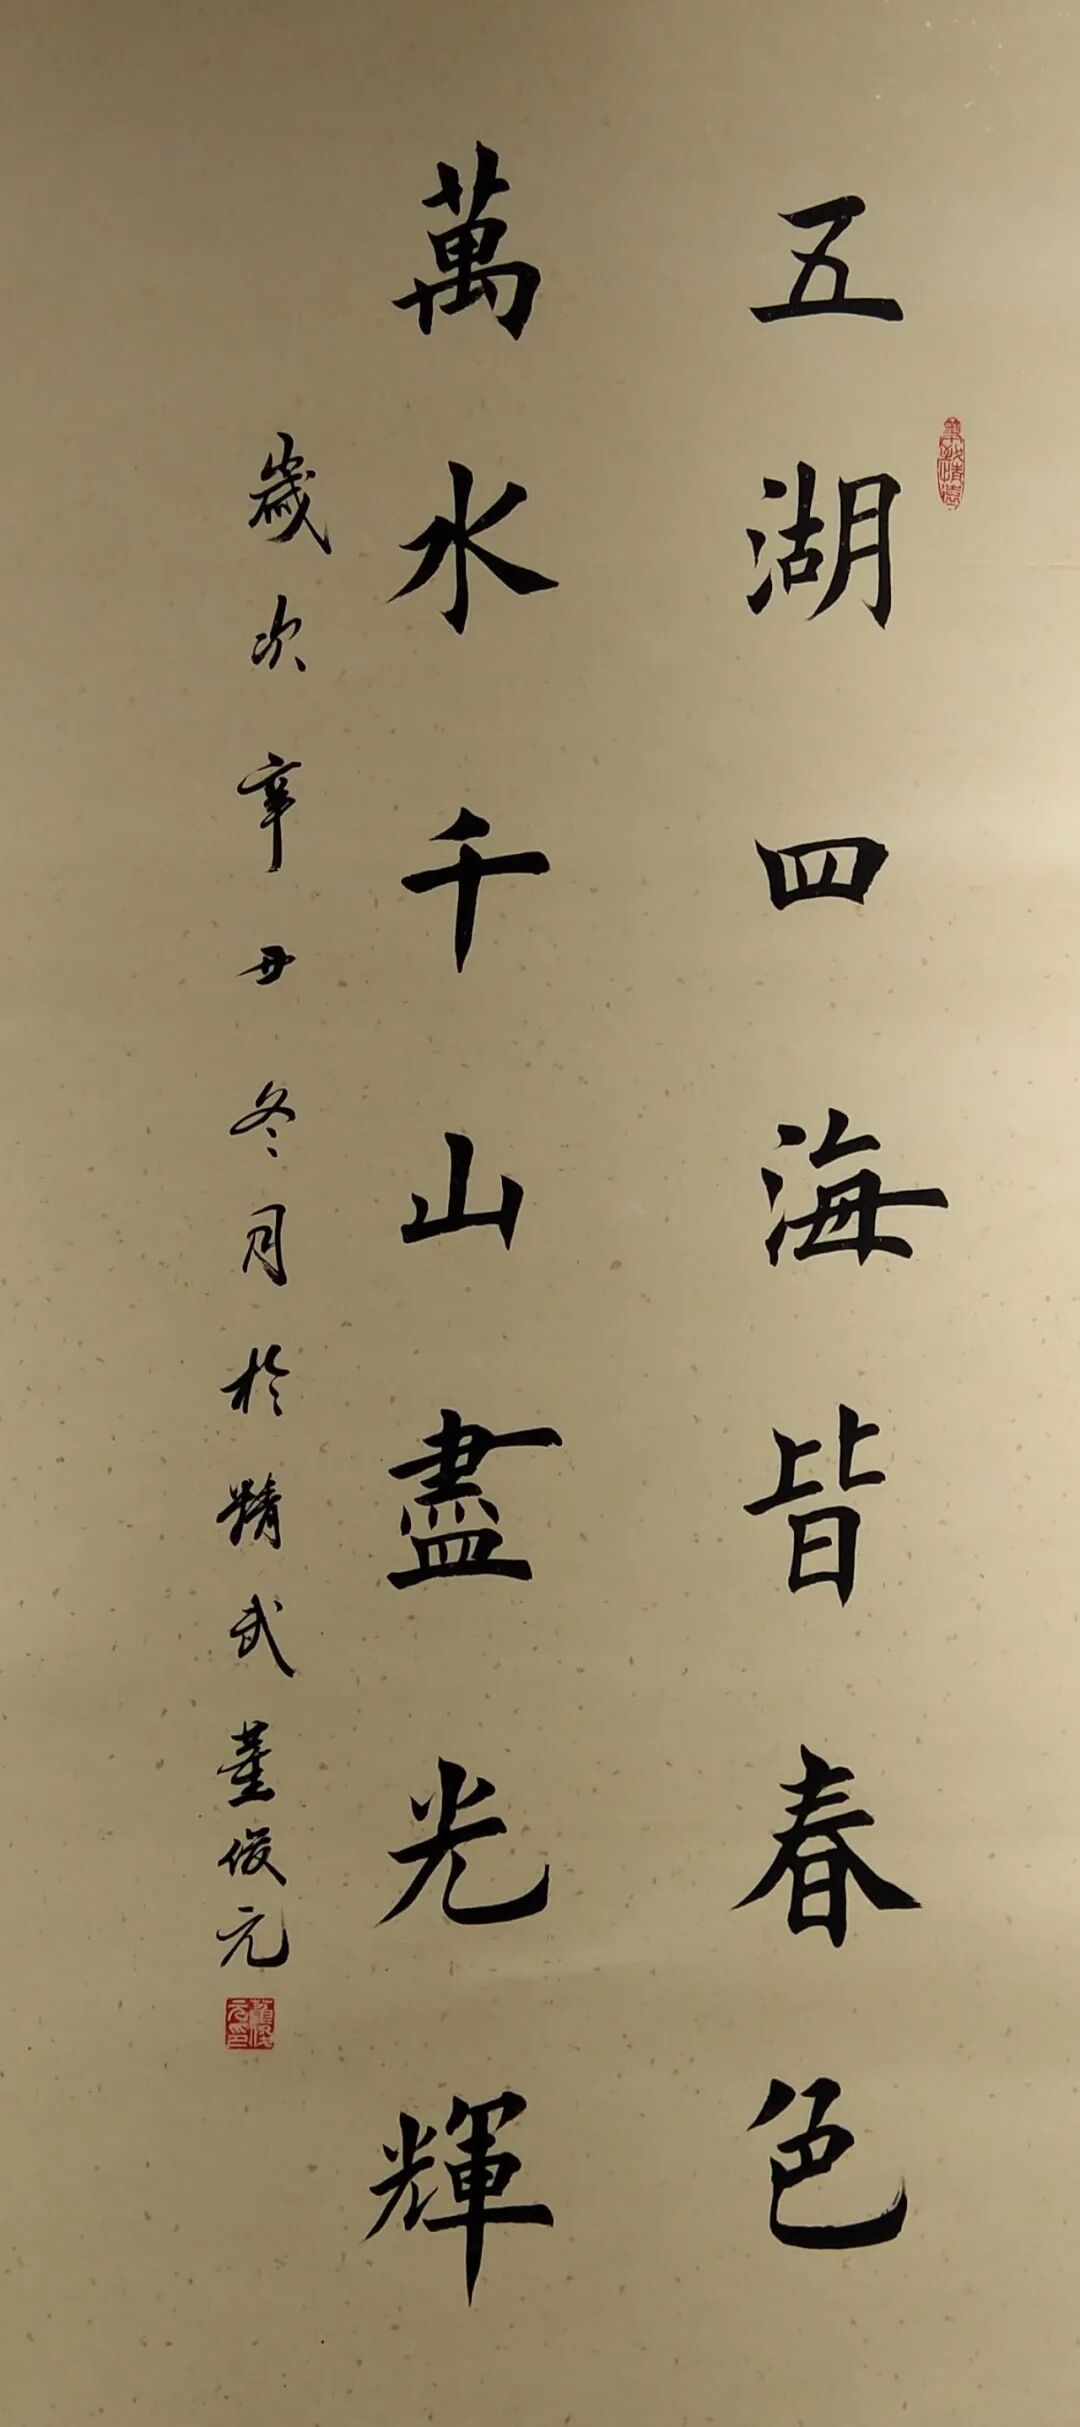 五湖四海皆春色
萬水千山盡光輝
歲次辛丑冬月於精武董俊元
董俊元印